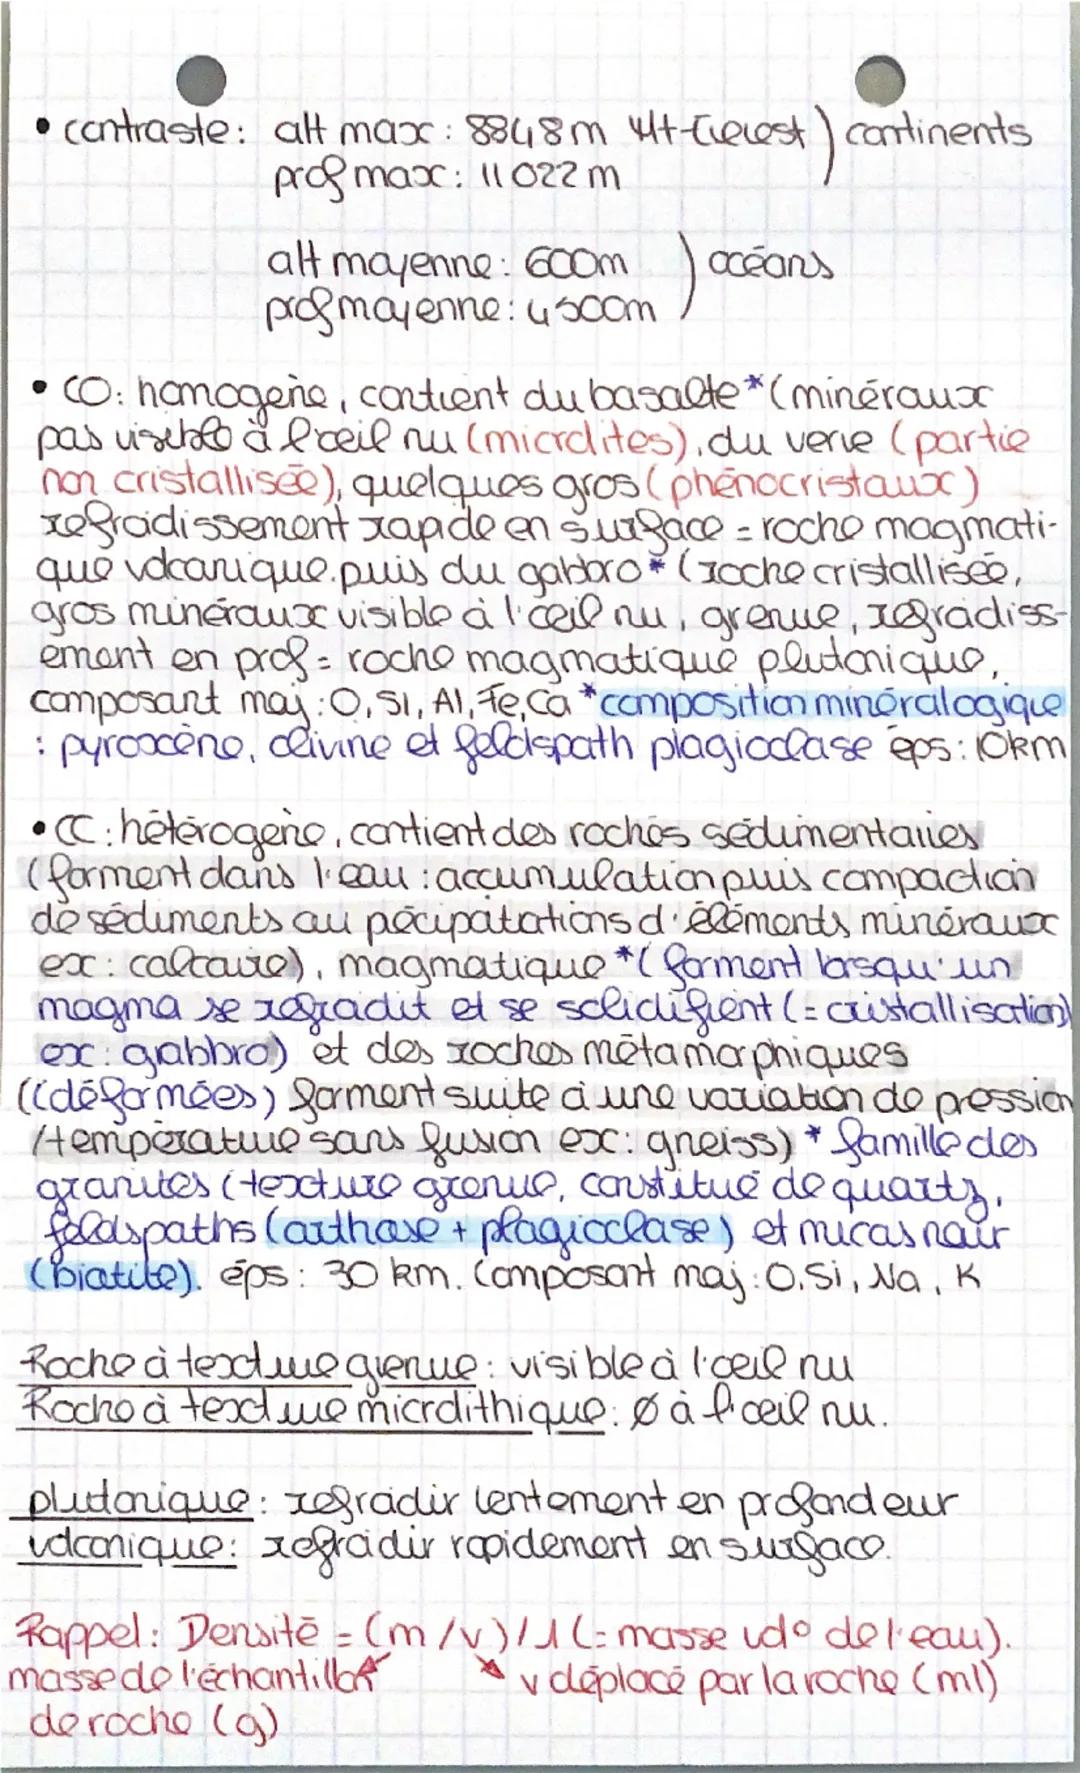 • contraste: alt max: 8848m Mt-Everest ) continents
prof max: 11 022 m
alt moyenne: 600m ) océans
prof moyenne: 4500m
• CO: homogène, contient du basalte* (minéraux
pas visible à l'œil nu (microlites), du verre (partie
non cristallisée), quelques gros (phénocristaux)
refroidissement rapide en surface = roche magmati-
que volcanique. puis du gabbro* (roche cristallisée,
gros minéraux visible à l'œil nu, grenue, refroidiss-
ement en prof = roche magmatique plutonique,
composant maj: O, Si, Al, Fe, Ca *composition minéralogique
: pyroxène, olivine et feldspath plagioclase éps: 10km
• CC: hétérogène, contient des roches sédimentaires
(forment dans l'eau: accumulation puis compaction
de sédiments ou pécipitations d'éléments minéraux
ex: calcaire), magmatique *( forment lorsqu'un
magma se refroidit et se solidifient (= cristallisation)
ex: grabbro) et des roches métamorphiques
((déformées) forment suite à une variation de pression
/température sans fusion ex: gneiss) * famille des
granites (texture grenue, constitué de quartz,
feldspaths (orthose + plagioclase) et micas noir
(biotite). éps: 30 km. Composant maj: O, Si, Na, K
Roche à texture grenue: visible à l'œil nu
Roche à texture microlithique: Ø à l'œil nu.
plutonique: refroidir lentement en profondeur
volcanique: refroidir rapidement en surface.
Rappel: Densité = (m/v)/1 (= masse vol° de l'eau).
masse de l'échantillon v déplacé par la roche (ml)
de roche (g)